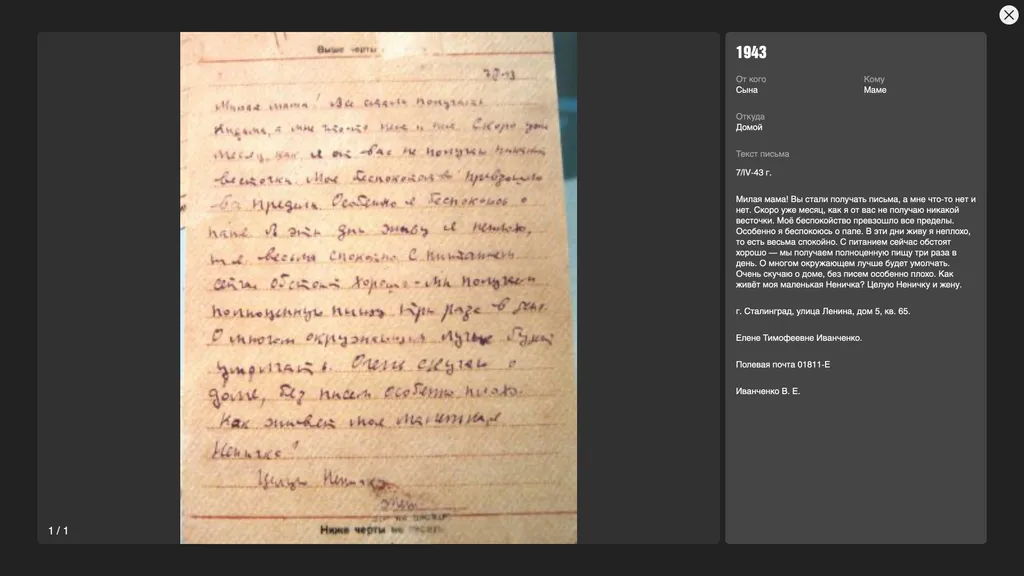 Выше черты
7/IV-43
Милая мама! Вы стали получать
письма, а мне что-то нет и нет. Скоро уже
месяц, как я от вас не получаю никакой
весточки. Моё беспокойство превзошло
все пределы. Особенно я беспокоюсь о
папе. В эти дни живу я неплохо,
т. е. весьма спокойно. С питанием
сейчас обстоит хорошо - мы получаем
полноценную пищу три раза в день.
О многом окружающем лучше будет
умолчать. Очень скучаю о
доме, без писем особенно плохо.
Как живёт моя маленькая
Неничка?
Целую Неничку
Ниже черты не писать
1 / 1
1943
От кого
Кому
Сына
Маме
Откуда
Домой
Текст письма
7/IV-43 г.
Милая мама! Вы стали получать письма, а мне что-то нет и
нет. Скоро уже месяц, как я от вас не получаю никакой
весточки. Моё беспокойство превзошло все пределы.
Особенно я беспокоюсь о папе. В эти дни живу я неплохо,
то есть весьма спокойно. С питанием сейчас обстоят
хорошо — мы получаем полноценную пищу три раза в
день. О многом окружающем лучше будет умолчать.
Очень скучаю о доме, без писем особенно плохо. Как
живёт моя маленькая Неничка? Целую Неничку и жену.
г. Сталинград, улица Ленина, дом 5, кв. 65.
Елене Тимофеевне Иванченко.
Полевая почта 01811-Е
Иванченко В. Е.